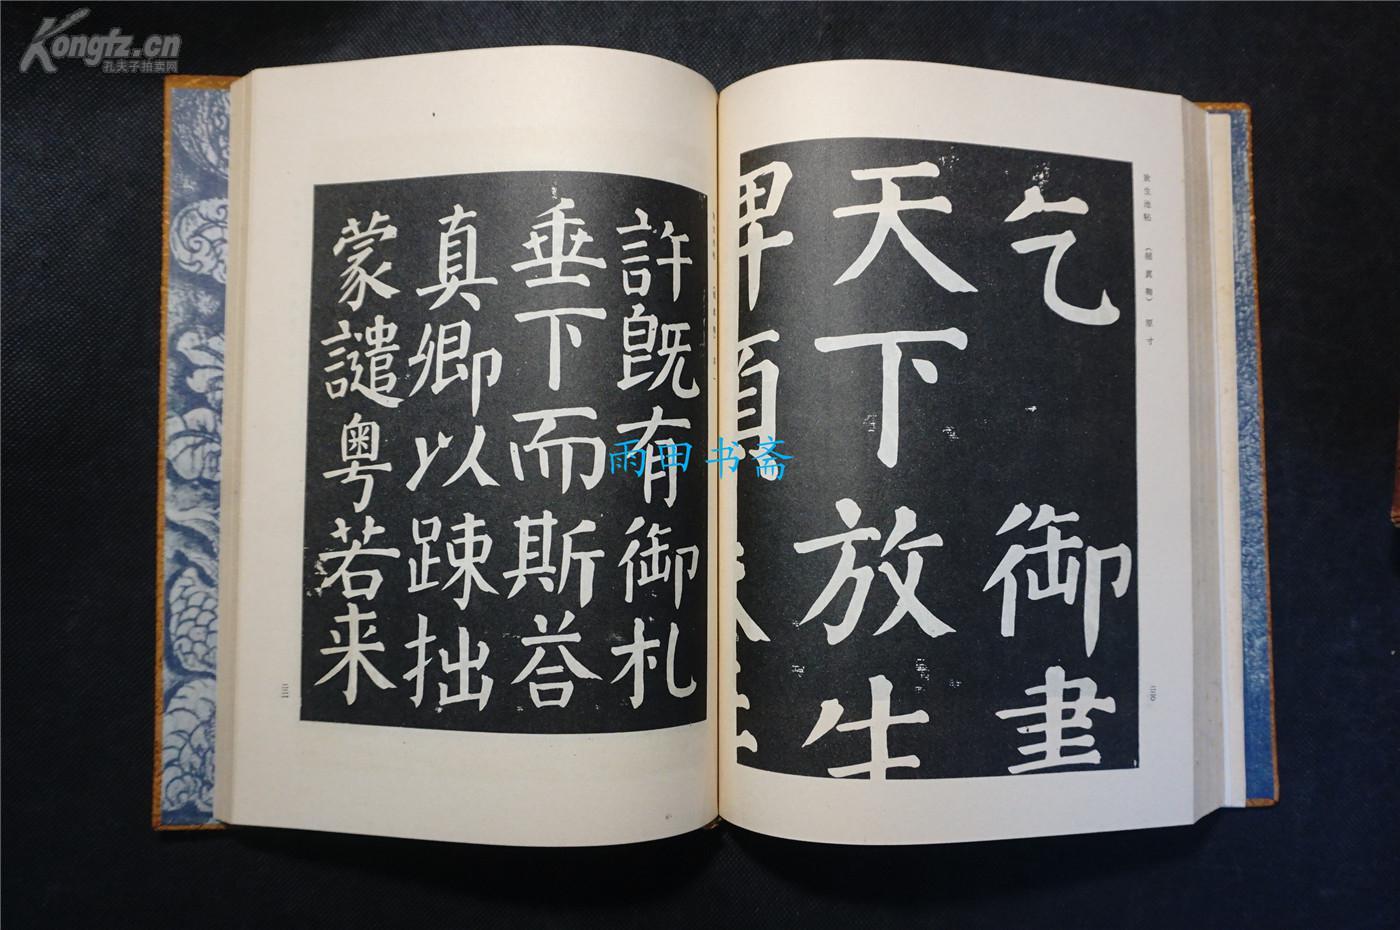 Kongfz.cn
孔夫子拍卖网
放生池帖
乞御書
天下放生
碑額
許既有御札
垂下而斯荅
真卿以踈拙
蒙譴粤若来
雨田书斋